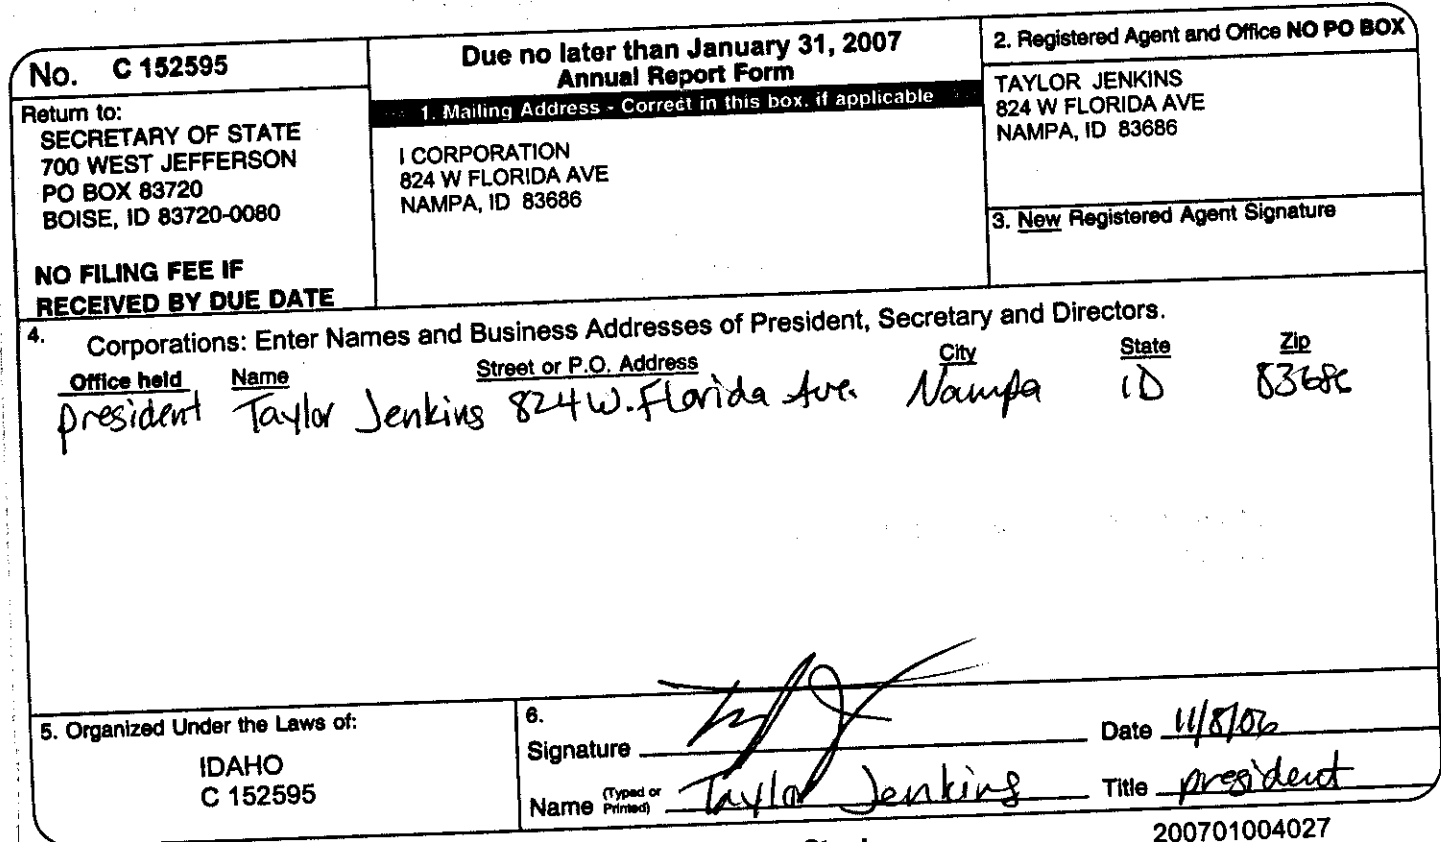 No. C 152595
Return to:
SECRETARY OF STATE
700 WEST JEFFERSON
PO BOX 83720
BOISE, ID 83720-0080
NO FILING FEE IF
RECEIVED BY DUE DATE
Due no later than January 31, 2007
Annual Report Form
1. Mailing Address - Correct in this box, if applicable
I CORPORATION
824 W FLORIDA AVE
NAMPA, ID 83686
2. Registered Agent and Office NO PO BOX
TAYLOR JENKINS
824 W FLORIDA AVE
NAMPA, ID 83686
3. New Registered Agent Signature
4. Corporations: Enter Names and Business Addresses of President, Secretary and Directors.
Office held Name Street or P.O. Address City State Zip
president Taylor Jenkins 824 W. Florida Ave. Nampa ID 83686
5. Organized Under the Laws of:
IDAHO
C 152595
6.
Signature Date 11/8/06
Name (Typed or Printed) Taylor Jenkins Title president
200701004027